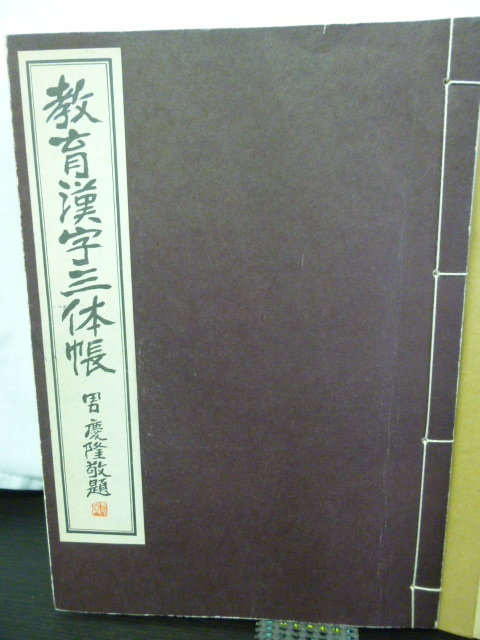 教育漢字三体帳
周慶隆敬題